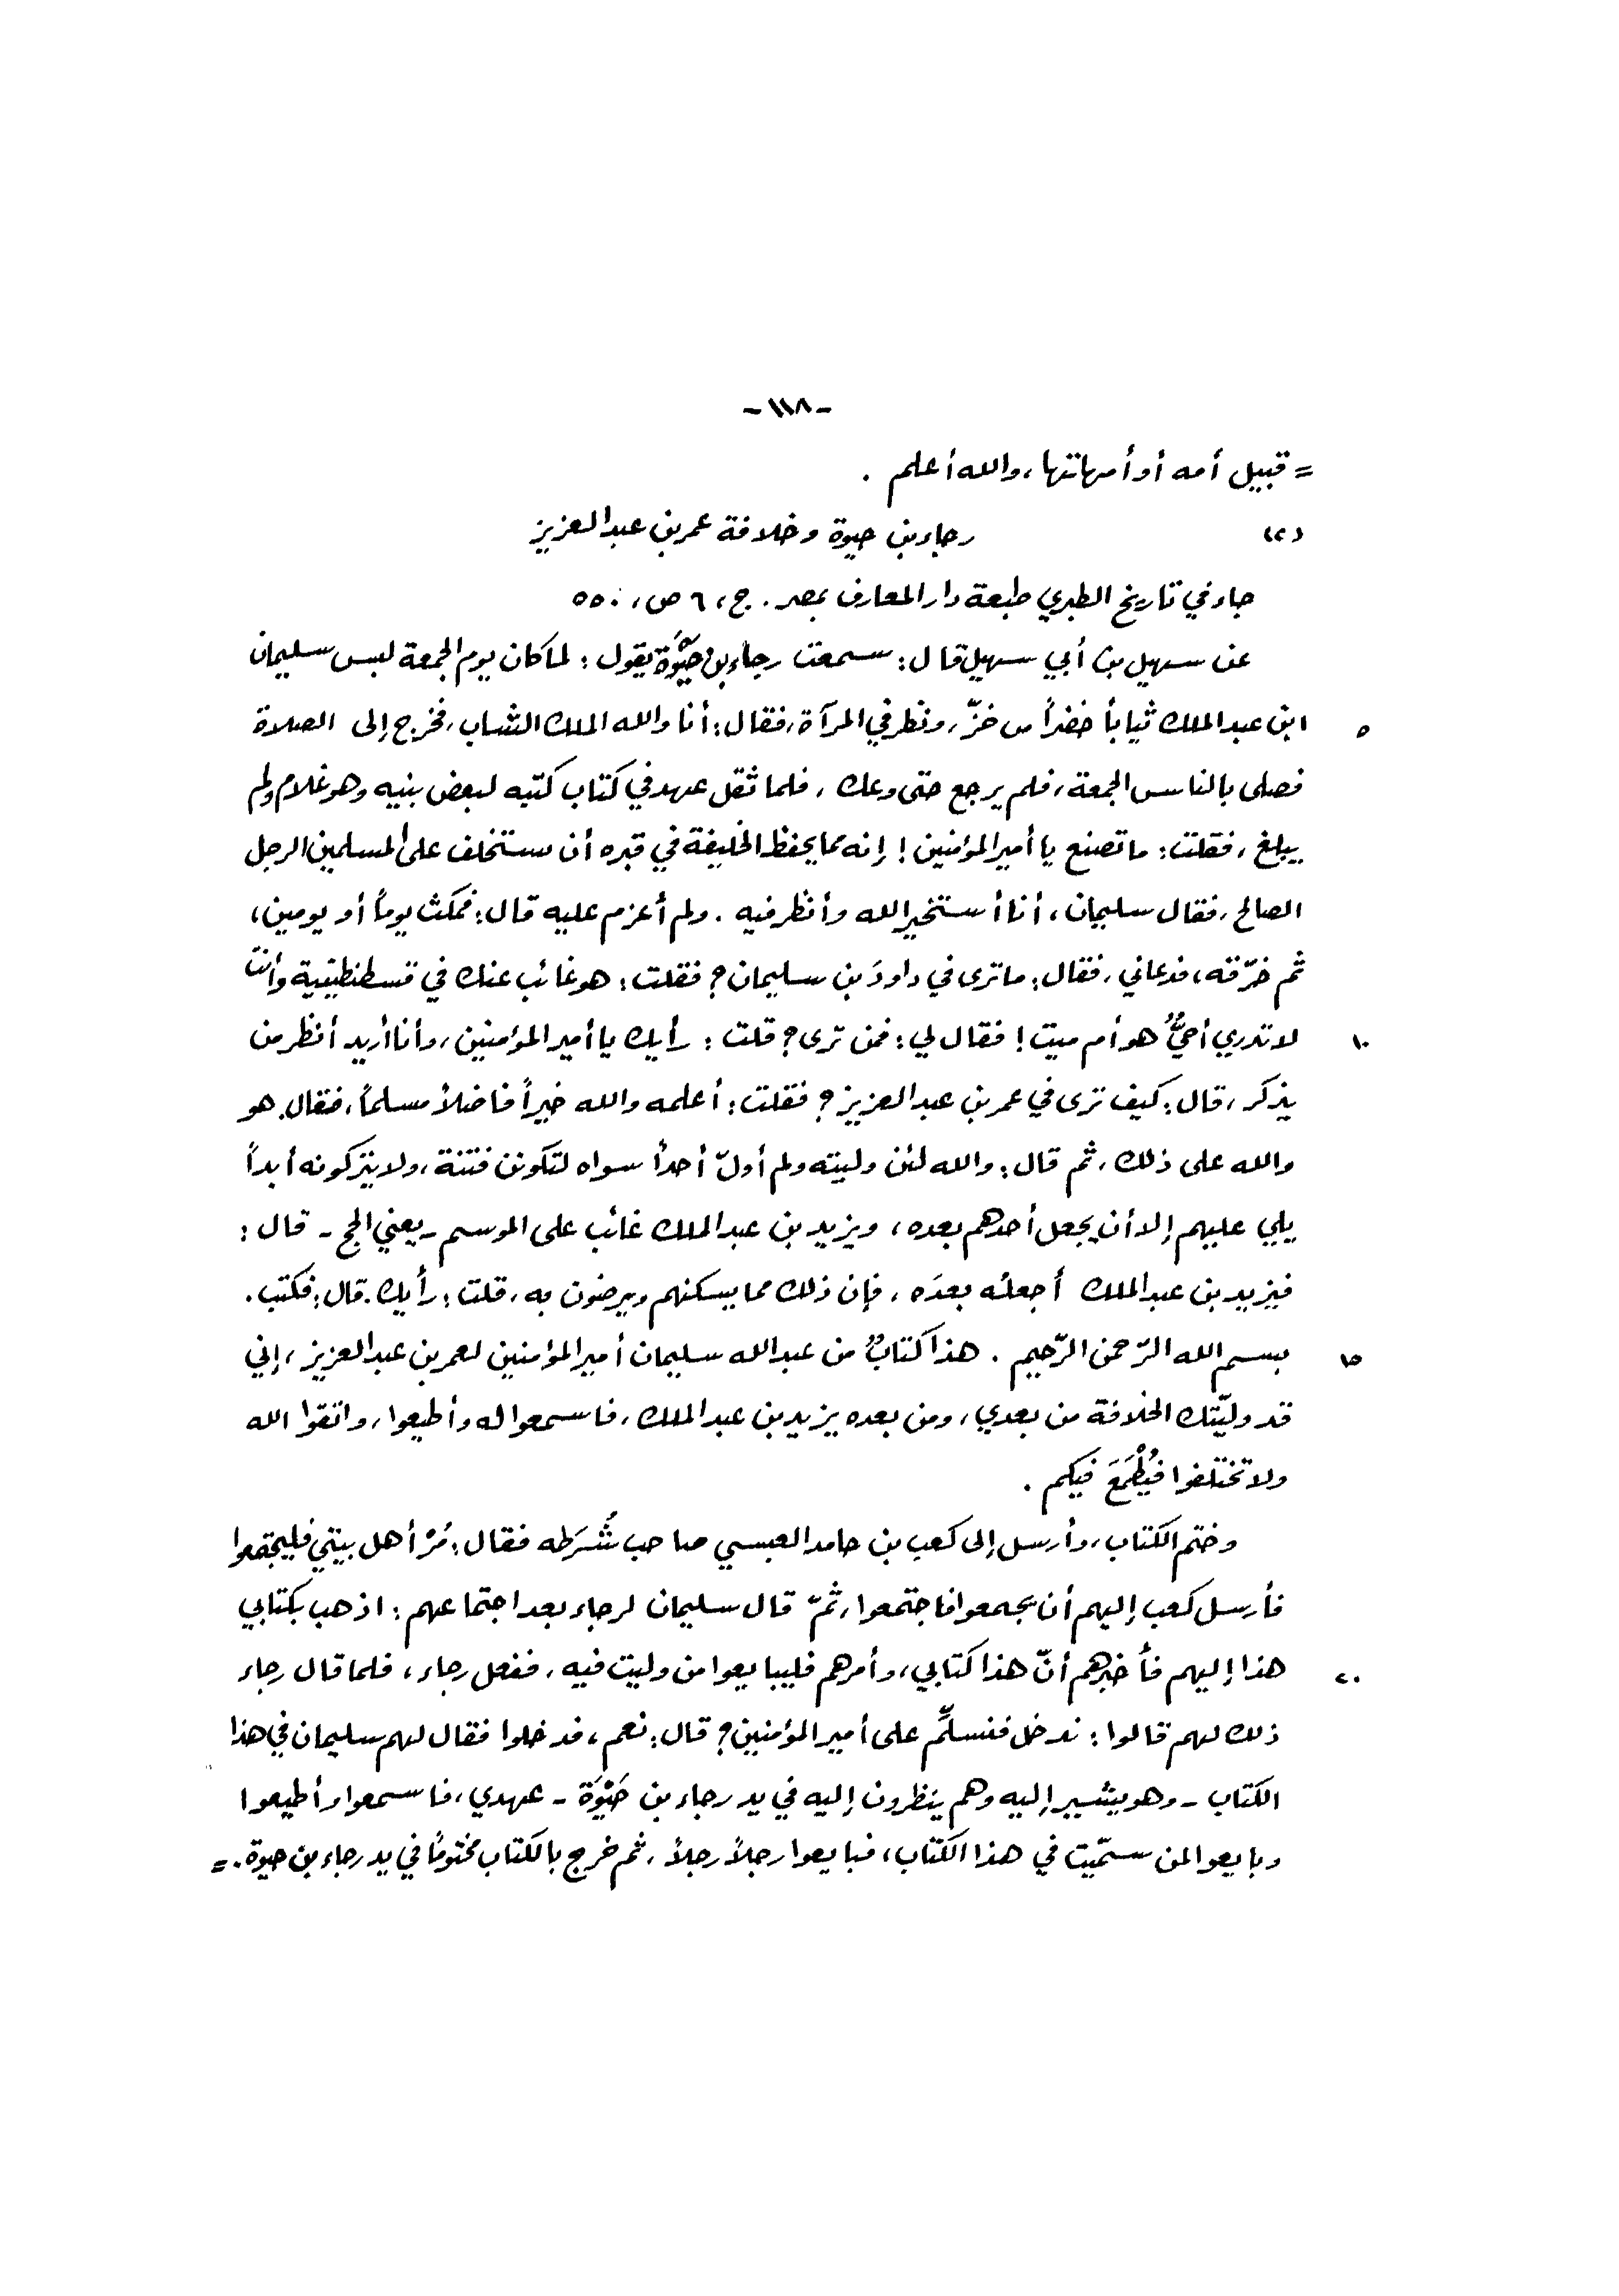 -١١٨-
= قبيل أمه أو أمهاتها، والله أعلم .
(٢) رجاء بن حيوة وخلافة عمر بن عبد العزيز
جاء في تاريخ الطبري طبعة دار المعارف بمصر . ج، ٦ ص، ٥٥٠
عن سهيل بن أبي سهيل قال : سمعت رجاء بن حَيْوَة يقول : لما كان يوم الجمعة لبس سليمان
٥ ابن عبد الملك ثياباً خضراً من خزّ، ونظر في المرآة، فقال : أنا والله الملك الشاب، فخرج إلى الصلاة
فصلى بالناس الجمعة، فلم يرجع حتى وعك، فلما ثقل عهد في كتاب كتبه لبعض بنيه وهو غلام ولم
يبلغ، فقلت : ما تصنع يا أمير المؤمنين ! إنه مما يحفظ الخليفة في قبره أن يستخلف على المسلمين الرجل
الصالح، فقال سليمان، أنا أستخير الله وأنظر فيه . ولم أعزم عليه قال : فمكث يوماً أو يومين،
ثم خرّقه، فدعاني، فقال : ما ترى في داودَ بن سليمان ؟ فقلت : هو غائب عنك في قسطنطينية وأنت
١٠ لا تدري أحيٌّ هو أم ميت ! فقال لي : فمن ترى ؟ قلت : رأيك يا أمير المؤمنين، وأنا أريد أنظر من
يذكر، قال : كيف ترى في عمر بن عبد العزيز ؟ فقلت : أعلمه والله خيراً فاضلاً مسلماً، فقال . هو
والله على ذلك، ثم قال : والله لئن وليته ولم أولّ أحداً سواه لتكونن فتنة، ولا يتركونه أبداً
يلي عليهم إلا أن يجعل أحدهم بعده، ويزيد بن عبد الملك غائب على الموسم - يعني الحج - قال :
فيزيد بن عبد الملك أجعله بعدَه، فإن ذلك مما يسكنهم ويرضون به، قلت : رأيك . قال : فكتب .
١٥ بسم الله الرّحمن الرّحيم . هذا كتابٌ من عبد الله سليمان أمير المؤمنين لعمر بن عبد العزيز، إني
قد وليّتك الخلافة من بعدي، ومن بعده يزيد بن عبد الملك، فاسمعوا له وأطيعوا، واتقوا الله
ولا تختلفوا فيُطْمَعَ فيكم .
وختم الكتاب، وأرسل إلى كعب بن حامد العبسي صاحب شُرَطه فقال : مُرْ أهل بيتي فليجتمعوا
فأرسل كعب إليهم أن يجمعوا فاجتمعوا، ثمّ قال سليمان لرجاء بعد اجتماعهم : اذهب بكتابي
٢٠ هذا إليهم فأخبرهم أنّ هذا كتابي، وأمرهم فليبايعوا من وليت فيه، ففعل رجاء، فلما قال رجاء
ذلك لهم قالوا : ندخل فنسلّم على أمير المؤمنين ؟ قال : نعم، فدخلوا فقال لهم سليمان في هذا
الكتاب - وهو يشير إليه وهم ينظرون إليه في يد رجاء بن حَيْوَة - عهدي، فاسمعوا وأطيعوا
وبايعوا لمن سمّيت في هذا الكتاب، فبايعوا رجلاً رجلاً، ثم خرج بالكتاب مختوماً في يد رجاء بن حيوة. =